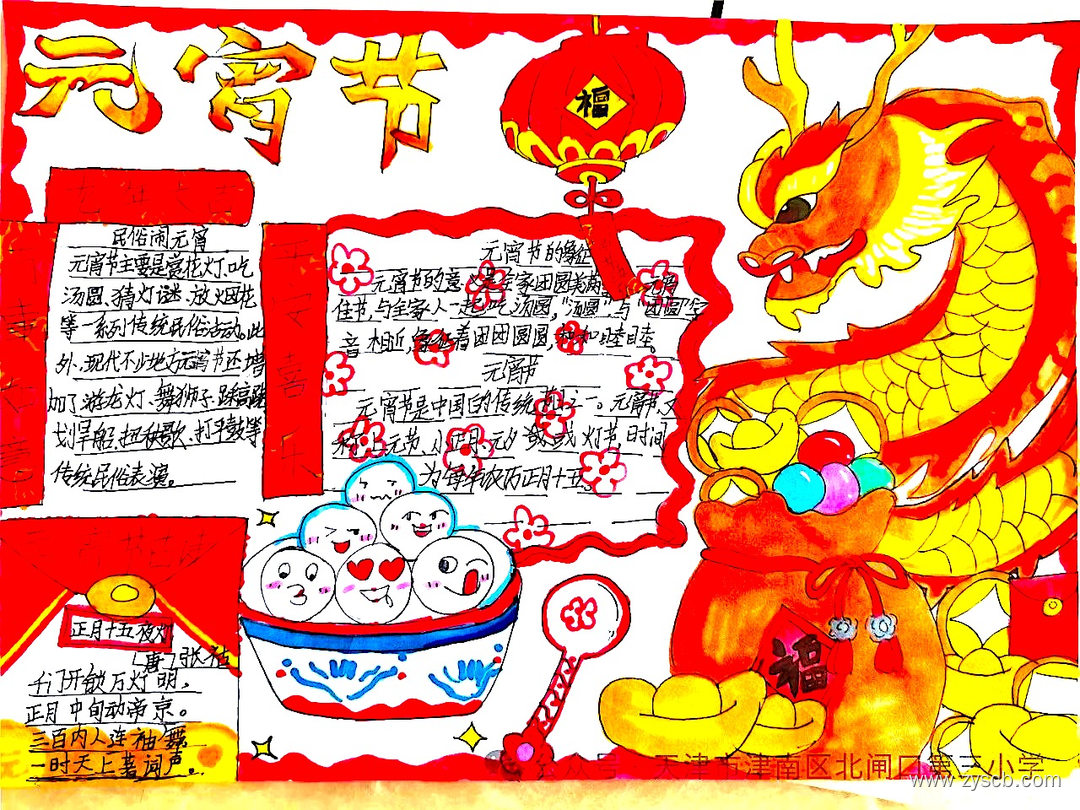 元宵节
福
民俗闹元宵
元宵节主要是赏花灯、吃
汤圆、猜灯谜、放烟花
等一系列传统民俗活动。此
外、现代不少地方元宵节还增
加了游龙灯、舞狮子、踩高跷
划旱船、扭秧歌、打平鼓等
传统民俗表演。
平安喜乐
元宵节的象征
元宵节的意义是全家团圆
佳节、与全家人一起吃汤圆，“汤圆”与“团圆”字
音相近，象征着团团圆圆，和和睦睦。
元宵节
元宵节是中国的传统节日之一。元宵节又
称上元节、小正月、元夕或灯节，时间
为每年农历正月十五。
正月十五夜灯
[唐]张祜
千门开锁万灯明，
正月中旬动帝京。
三百内人连袖舞
一时天上著词声。
福
公众号 天津市津南区北闸口第三小学
www.zyscb.com